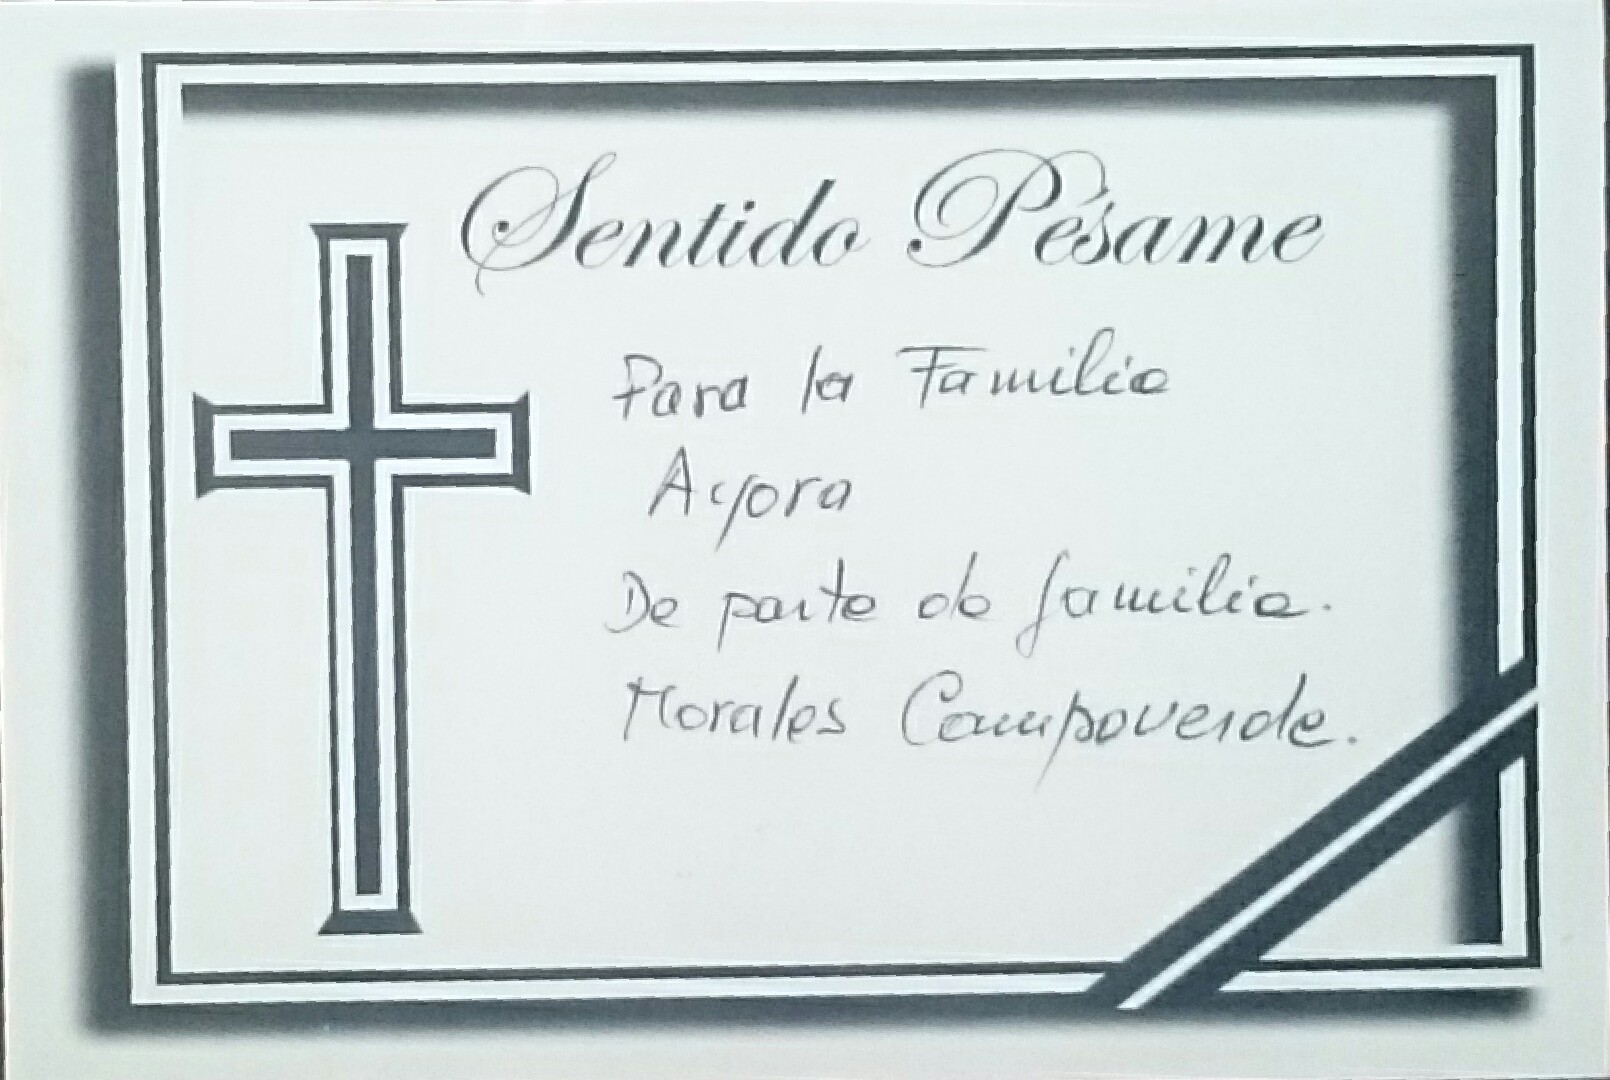 Sentido Pésame
Para la Familia
Ayora
De parte de familia.
Morales Campoverde.